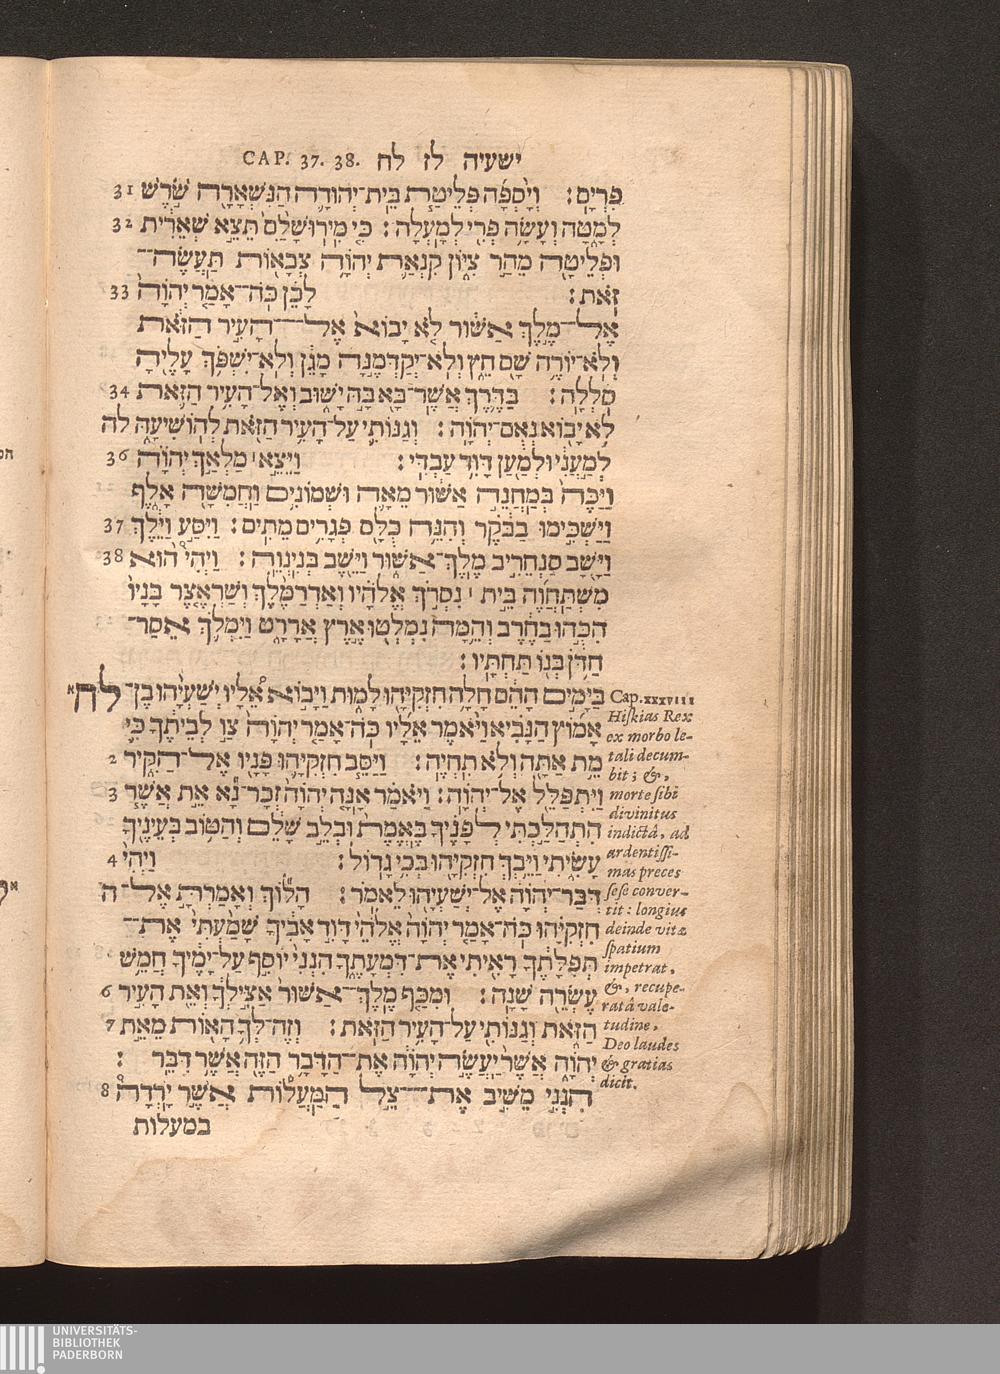 CAP. 37. 38. ישעיה לז לח
פְּרָיִם׃ וְיָסְפָה פְּלֵיטַת בֵּית־יְהוּדָה הַנִּשְׁאָרָה שֹׁרֶשׁ 31
לְמָטָּה וְעָשָׂה פְרִי לְמָעְלָה׃ כִּי מִירוּשָׁלִַם תֵּצֵא שְׁאֵרִית 32
וּפְלֵיטָה מֵהַר צִיּוֹן קִנְאַת יְהוָה צְבָאוֹת תַּעֲשֶׂה־
זֹּאת׃ לָכֵן כֹּה־אָמַר יְהוָה 33
אֶל־מֶלֶךְ אַשּׁוּר לֹא יָבוֹא אֶל־הָעִיר הַזֹּאת
וְלֹא־יוֹרֶה שָׁם חֵץ וְלֹא־יְקַדְּמֶנָּה מָגֵן וְלֹא־יִשְׁפֹּךְ עָלֶיהָ
סֹלְלָה׃ בַּדֶּרֶךְ אֲשֶׁר־בָּא בָּהּ יָשׁוּב וְאֶל־הָעִיר הַזֹּאת 34
לֹא יָבוֹא נְאֻם־יְהוָה׃ וְגַנּוֹתִי עַל־הָעִיר הַזֹּאת לְהוֹשִׁיעָהּ לה
לְמַעֲנִי וּלְמַעַן דָּוִד עַבְדִּי׃ וַיֵּצֵא ׀ מַלְאַךְ יְהוָה 36
וַיַּכֶּה בְּמַחֲנֵה אַשּׁוּר מֵאָה וּשְׁמוֹנִים וַחֲמִשָּׁה אָלֶף
וַיַּשְׁכִּימוּ בַבֹּקֶר וְהִנֵּה כֻלָּם פְּגָרִים מֵתִים׃ וַיִּסַּע וַיֵּלֶךְ 37
וַיָּשָׁב סַנְחֵרִיב מֶלֶךְ־אַשּׁוּר וַיֵּשֶׁב בְּנִינְוֵה׃ וַיְהִי הוּא 38
מִשְׁתַּחֲוֶה בֵּית ׀ נִסְרֹךְ אֱלֹהָיו וְאַדְרַמֶּלֶךְ וְשַׂרְאֶצֶר בָּנָיו
הִכֻּהוּ בַחֶרֶב וְהֵמָּה נִמְלְטוּ אֶרֶץ אֲרָרָט וַיִּמְלֹךְ אֵסַר־
חַדֹּן בְּנוֹ תַּחְתָּיו׃
בַּיָּמִים הָהֵם חָלָה חִזְקִיָּהוּ לָמוּת וַיָּבוֹא אֵלָיו יְשַׁעְיָהוּ בֶן־ לח א
אָמוֹץ הַנָּבִיא וַיֹּאמֶר אֵלָיו כֹּה־אָמַר יְהוָה צַו לְבֵיתֶךָ כִּי
מֵת אַתָּה וְלֹא תִחְיֶה׃ וַיַּסֵּב חִזְקִיָּהוּ פָּנָיו אֶל־הַקִּיר 2
וַיִּתְפַּלֵּל אֶל־יְהוָה׃ וַיֹּאמַר אָנָּה יְהוָה זְכָר־נָא אֵת אֲשֶׁר 3
הִתְהַלַּכְתִּי לְפָנֶיךָ בֶּאֱמֶת וּבְלֵב שָׁלֵם וְהַטּוֹב בְּעֵינֶיךָ
עָשִׂיתִי וַיֵּבְךְּ חִזְקִיָּהוּ בְּכִי גָדוֹל׃ וַיְהִי 4
דְּבַר־יְהוָה אֶל־יְשַׁעְיָהוּ לֵאמֹר׃ הָלוֹךְ וְאָמַרְתָּ אֶל־ ה
חִזְקִיָּהוּ כֹּה־אָמַר יְהוָה אֱלֹהֵי דָּוִד אָבִיךָ שָׁמַעְתִּי אֶת־
תְּפִלָּתֶךָ רָאִיתִי אֶת־דִּמְעָתֶךָ הִנְנִי יוֹסִף עַל־יָמֶיךָ חֲמֵשׁ
עֶשְׂרֵה שָׁנָה׃ וּמִכַּף מֶלֶךְ־אַשּׁוּר אַצִּילְךָ וְאֵת הָעִיר 6
הַזֹּאת וְגַנּוֹתִי עַל־הָעִיר הַזֹּאת׃ וְזֶה־לְּךָ הָאוֹת מֵאֵת 7
יְהוָה אֲשֶׁר יַעֲשֶׂה יְהוָה אֶת־הַדָּבָר הַזֶּה אֲשֶׁר דִּבֵּר׃
הִנְנִי מֵשִׁיב אֶת־צֵל הַמַּעֲלוֹת אֲשֶׁר יָרְדָה 8
במעלות
Cap.xxxviii
Hiskias Rex
ex morbo le-
tali decum-
bit; &,
morte sibi
divinitus
indictâ, ad
ardentissi-
mas preces
sese conver-
tit: longius
deinde vitæ
spatium
impetrat,
&, recupe-
ratâ vale-
tudine,
Deo laudes
& gratias
dicit.
UNIVERSITÄTS-
BIBLIOTHEK
PADERBORN